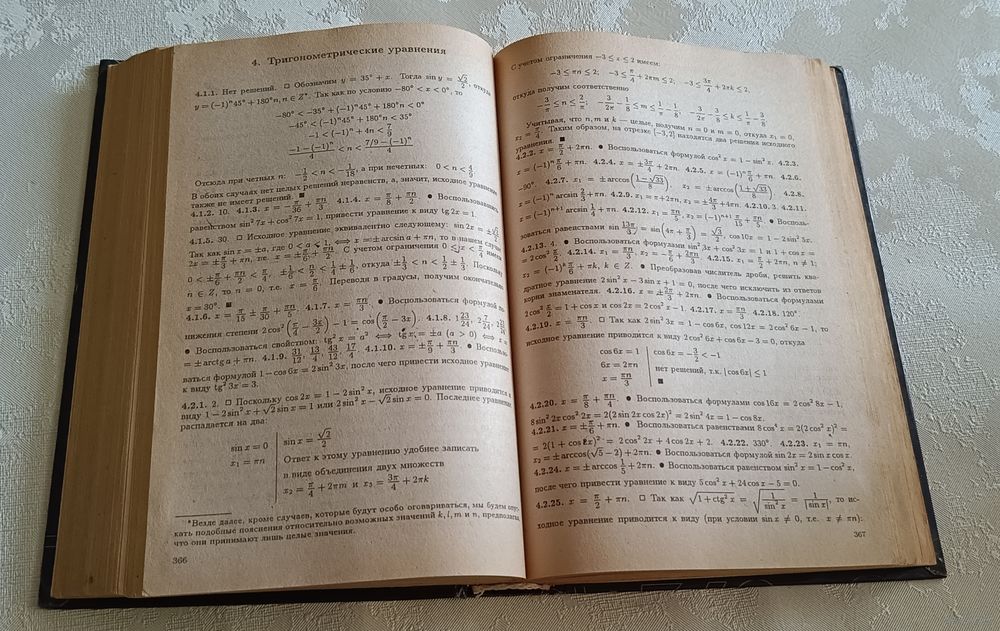 4. Тригонометрические уравнения
4.1.1. Нет решений. □ Обозначим y = 35° + x. Тогда sin y = √2/2, откуда
y = (−1)ⁿ45° + 180°n, n ∈ Z*. Так как по условию −80° < x < 0°, то
−80° < −35° + (−1)ⁿ45° + 180°n < 0°
−45° < (−1)ⁿ45° + 180°n < 35°
−1 < (−1)ⁿ + 4n < 7/9
(−1 − (−1)ⁿ)/4 < n < (7/9 − (−1)ⁿ)/4
Отсюда при четных n: −1/2 < n < −1/18, а при нечетных: 0 < n < 4/9
В обоих случаях нет целых решений неравенств, а, значит, исходное уравнение
также не имеет решений. ■
4.1.2. 10. 4.1.3. x = −π/36 + πn/3. 4.1.4. x = π/8 + πn/2. ● Воспользовавшись
равенством sin² 7x + cos² 7x = 1, привести уравнение к виду tg 2x = 1.
4.1.5. 30. □ Исходное уравнение эквивалентно следующему: sin 2x = ±√3/2
Так как sin x = ±a, где 0 < a < 1, ⟺ x = ± arcsin a + πn, то в нашем случае
2x = ±π/3 + πn, т.е. x = ±π/6 + πn/2. С учетом ограничения 0 < x < π/4 имеем
0 < ±π/6 + πn/2 < π/4, ±1/6 < n/2 < 1/4 ± 1/6, откуда ±1/3 < n < 1/2 ± 1/3. Поскольку
n ∈ Z, то n = 0, т.е. x = π/6. Переводя в градусы, получим окончательно
x = 30°. ■
4.1.6. x = π/15 ± π/30 + πn/5. 4.1.7. x = πn/3. ● Воспользоваться формулой по-
нижения степени 2 cos² (π/4 − 3x/2) − 1 = cos (π/2 − 3x). 4.1.8.
● Воспользоваться свойством: tg² x = a² ⟺ tg x = ±a (a > 0) ⟺ x =
= ± arctg a + πn. 4.1.9. 31/12, 13/4, 43/12, 17/4. 4.1.10. x = ±π/9 + πn/3. ● Воспользо-
ваться формулой 1 − cos 6x = 2 sin² 3x, после чего привести исходное уравнение
к виду tg² 3x = 3.
4.2.1. 2. □ Поскольку cos 2x = 1 − 2 sin² x, исходное уравнение приводится к
виду 1 − 2 sin² x + √2 sin x = 1 или 2 sin² x − √2 sin x = 0. Последнее уравнение
распадается на два:
sin x = 0 | sin x = √2/2
x₁ = πn | Ответ к этому уравнению удобнее записать
в виде объединения двух множеств
x₂ = π/4 + 2πm и x₃ = 3π/4 + 2πk
*Везде далее, кроме случаев, которые будут особо оговариваться, мы будем опус-
кать подобные пояснения относительно возможных значений k, l, m и n, предполагая,
что они принимают лишь целые значения.
366
С учетом ограничения −3 ≤ x ≤ 2 имеем:
−3 ≤ πn ≤ 2; −3 ≤ π/4 + 2πm ≤ 2; −3 ≤ 3π/4 + 2πk ≤ 2,
откуда получим соответственно
−3/π ≤ n ≤ 2/π; −3/2π − 1/8 ≤ m ≤ 1/π − 1/8; −3/2π − 3/8 ≤ k ≤ 1/π − 3/8
Учитывая, что n, m и k — целые, получим n = 0 и m = 0, откуда x₁ = 0,
x₂ = π/4. Таким образом, на отрезке [−3, 2] находятся два решения исходного
уравнения. ■
4.2.2. x = π/2 + 2πn. ● Воспользоваться формулой cos² x = 1 − sin² x. 4.2.3.
x = (−1)ⁿ π/6 + πn. 4.2.4. x = ±3π/4 + 2πn. 4.2.5. x = (−1)ⁿ π/6 + πn. 4.2.6.
−90°. 4.2.7. x₁ = ± arccos((1 − √33)/8), x₂ = ± arccos((1 + √33)/8). 4.2.8.
x = (−1)ⁿ arcsin 2/3 + πn. 4.2.9. x₁ = π + 2πn, x₂ = ±4π/3 + 4πn. 4.2.10. 3. 4.2.11.
x = (−1)ⁿ⁺¹ arcsin 1/4 + πn. 4.2.12. x₁ = πn/5, x₂ = (−1)ⁿ π/15 + πn/5. ● Восполь-
зоваться равенствами sin 13π/3 = sin (4π + π/3) = √3/2, cos 10x = 1 − 2 sin² 5x.
4.2.13. 4. ● Воспользоваться формулами sin² 3x + cos² 3x = 1 и 1 + cos x =
= 2 cos² x/2. 4.2.14. x₁ = πn/3, x₂ = −π/6 + 2πn/3. 4.2.15. x₁ = π/2 + 2πn, n ≠ 1;
x₂ = (−1)ᵏ π/6 + πk, k ∈ Z. ● Преобразовав числитель дроби, решить ква-
дратное уравнение 2 sin² x − 3 sin x + 1 = 0, после чего исключить из ответов
корни знаменателя. 4.2.16. x = ±2π/3 + 2πn. ● Воспользоваться формулами
2 cos² x/2 = 1 + cos x и cos 2x = 2 cos² x − 1. 4.2.17. x = πn/3. 4.2.18. 120°
4.2.19. x = πn/3. □ Так как 2 sin² 3x = 1 − cos 6x, cos 12x = 2 cos² 6x − 1, то
исходное уравнение приводится к виду 2 cos² 6x + cos 6x − 3 = 0, откуда
cos 6x = 1 | cos 6x = −3/2 < −1
6x = 2πn | нет решений, т.к. |cos 6x| ≤ 1
x = πn/3 | ■
4.2.20. x = π/8 + πn/4. ● Воспользоваться формулами cos 16x = 2 cos² 8x − 1,
8 sin² 2x cos² 2x = 2(2 sin 2x cos 2x)² = 2 sin² 4x = 1 − cos 8x.
4.2.21. x = ±π/6 + πn. ● Воспользоваться равенствами 8 cos⁴ x = 2(2 cos² x)² =
= 2(1 + cos 2x)² = 2 cos² 2x + 4 cos 2x + 2. 4.2.22. 330°. 4.2.23. x₁ = πn,
x₂ = ± arccos(√5 − 2) + 2πn. ● Воспользоваться формулой sin 2x = 2 sin x cos x.
4.2.24. x = ± arccos 1/5 + 2πn. ● Воспользоваться равенством sin² x = 1 − cos² x,
после чего привести уравнение к виду 5 cos² x + 24 cos x − 5 = 0.
4.2.25. x = π/2 + πn. □ Так как √(1 + ctg² x) = √(1/sin² x) = 1/|sin x|, то ис-
ходное уравнение приводится к виду (при условии sin x ≠ 0, т.е. x ≠ πn):
367